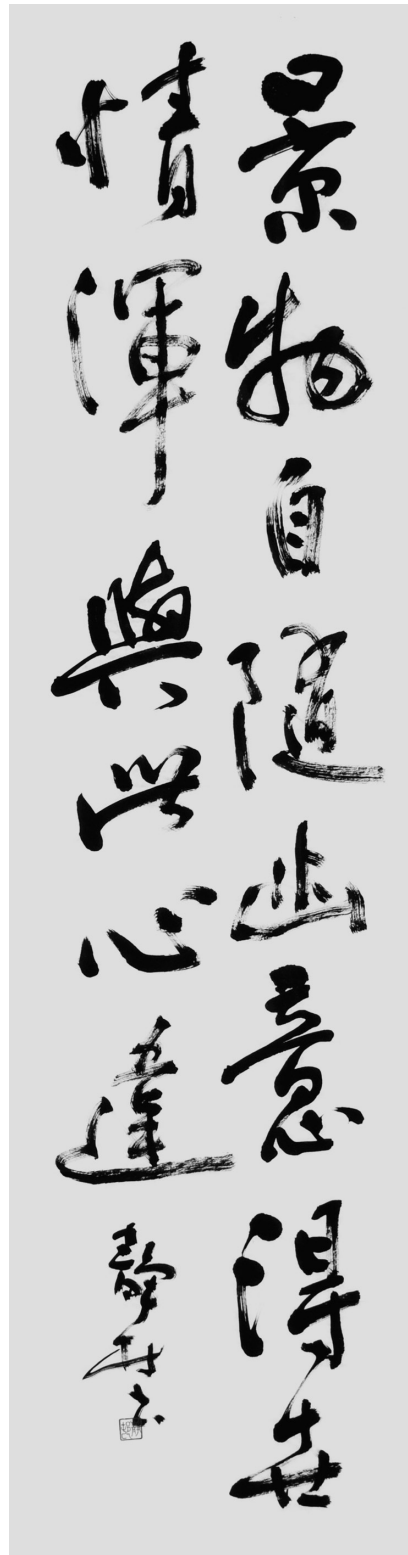 景物自隨幽意得世
情渾與此心違
靜村書